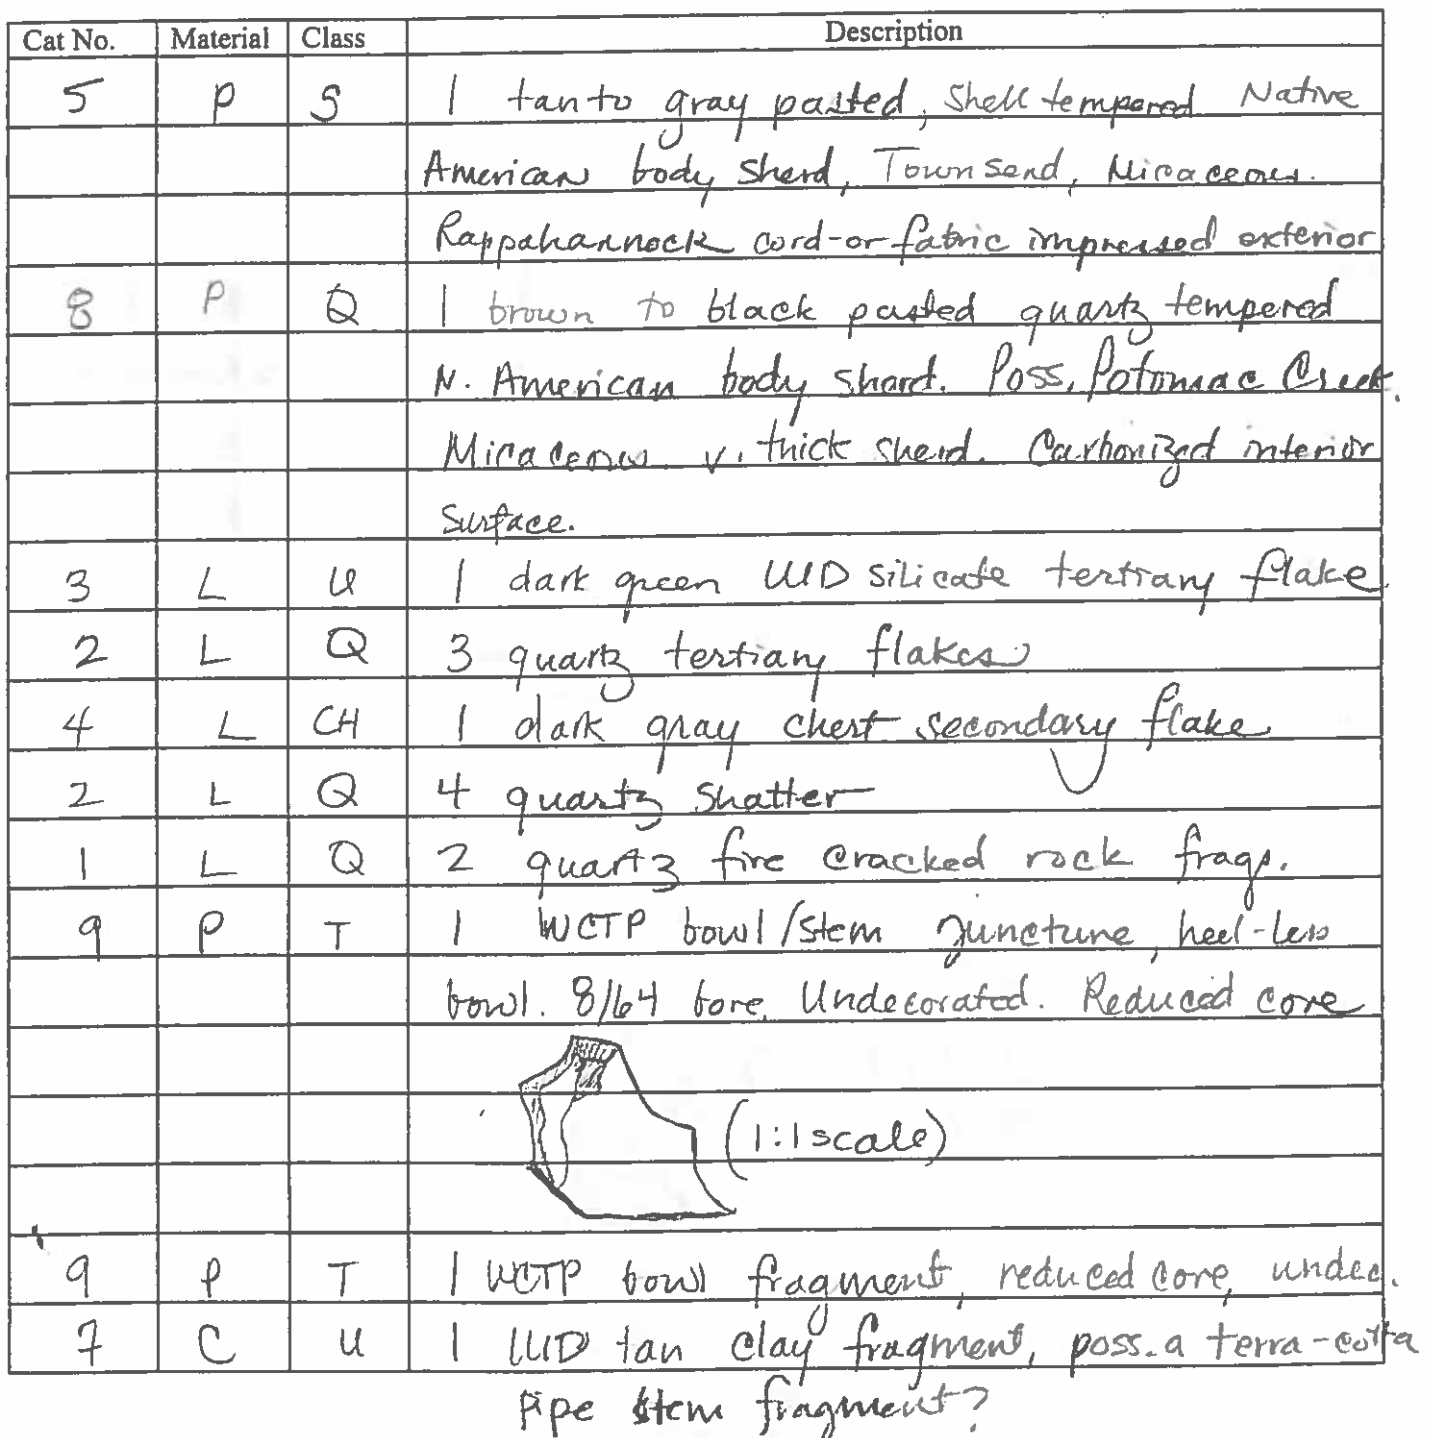 Cat No. Material Class Description
5 P S 1 tan to gray pasted, shell tempered Native
American body sherd, Townsend, Micaceous.
Rappahannock cord-or-fabric impressed exterior
8 P Q 1 brown to black pasted quartz tempered
N. American body sherd. Poss. Potomac Creek.
Micaceous v. thick sherd. Carbonized interior
surface.
3 L U 1 dark green UID silicate tertiary flake
2 L Q 3 quartz tertiary flakes
4 L CH 1 dark gray chert secondary flake
2 L Q 4 quartz shatter
1 L Q 2 quartz fire cracked rock frags.
9 P T 1 WCTP bowl/stem juncture, heel-less
bowl. 8/64 bore. Undecorated. Reduced core
(1:1 scale)
9 P T 1 WCTP bowl fragment, reduced core, undec.
7 C U 1 UID tan clay fragment, poss. a terra-cotta
pipe stem fragment?